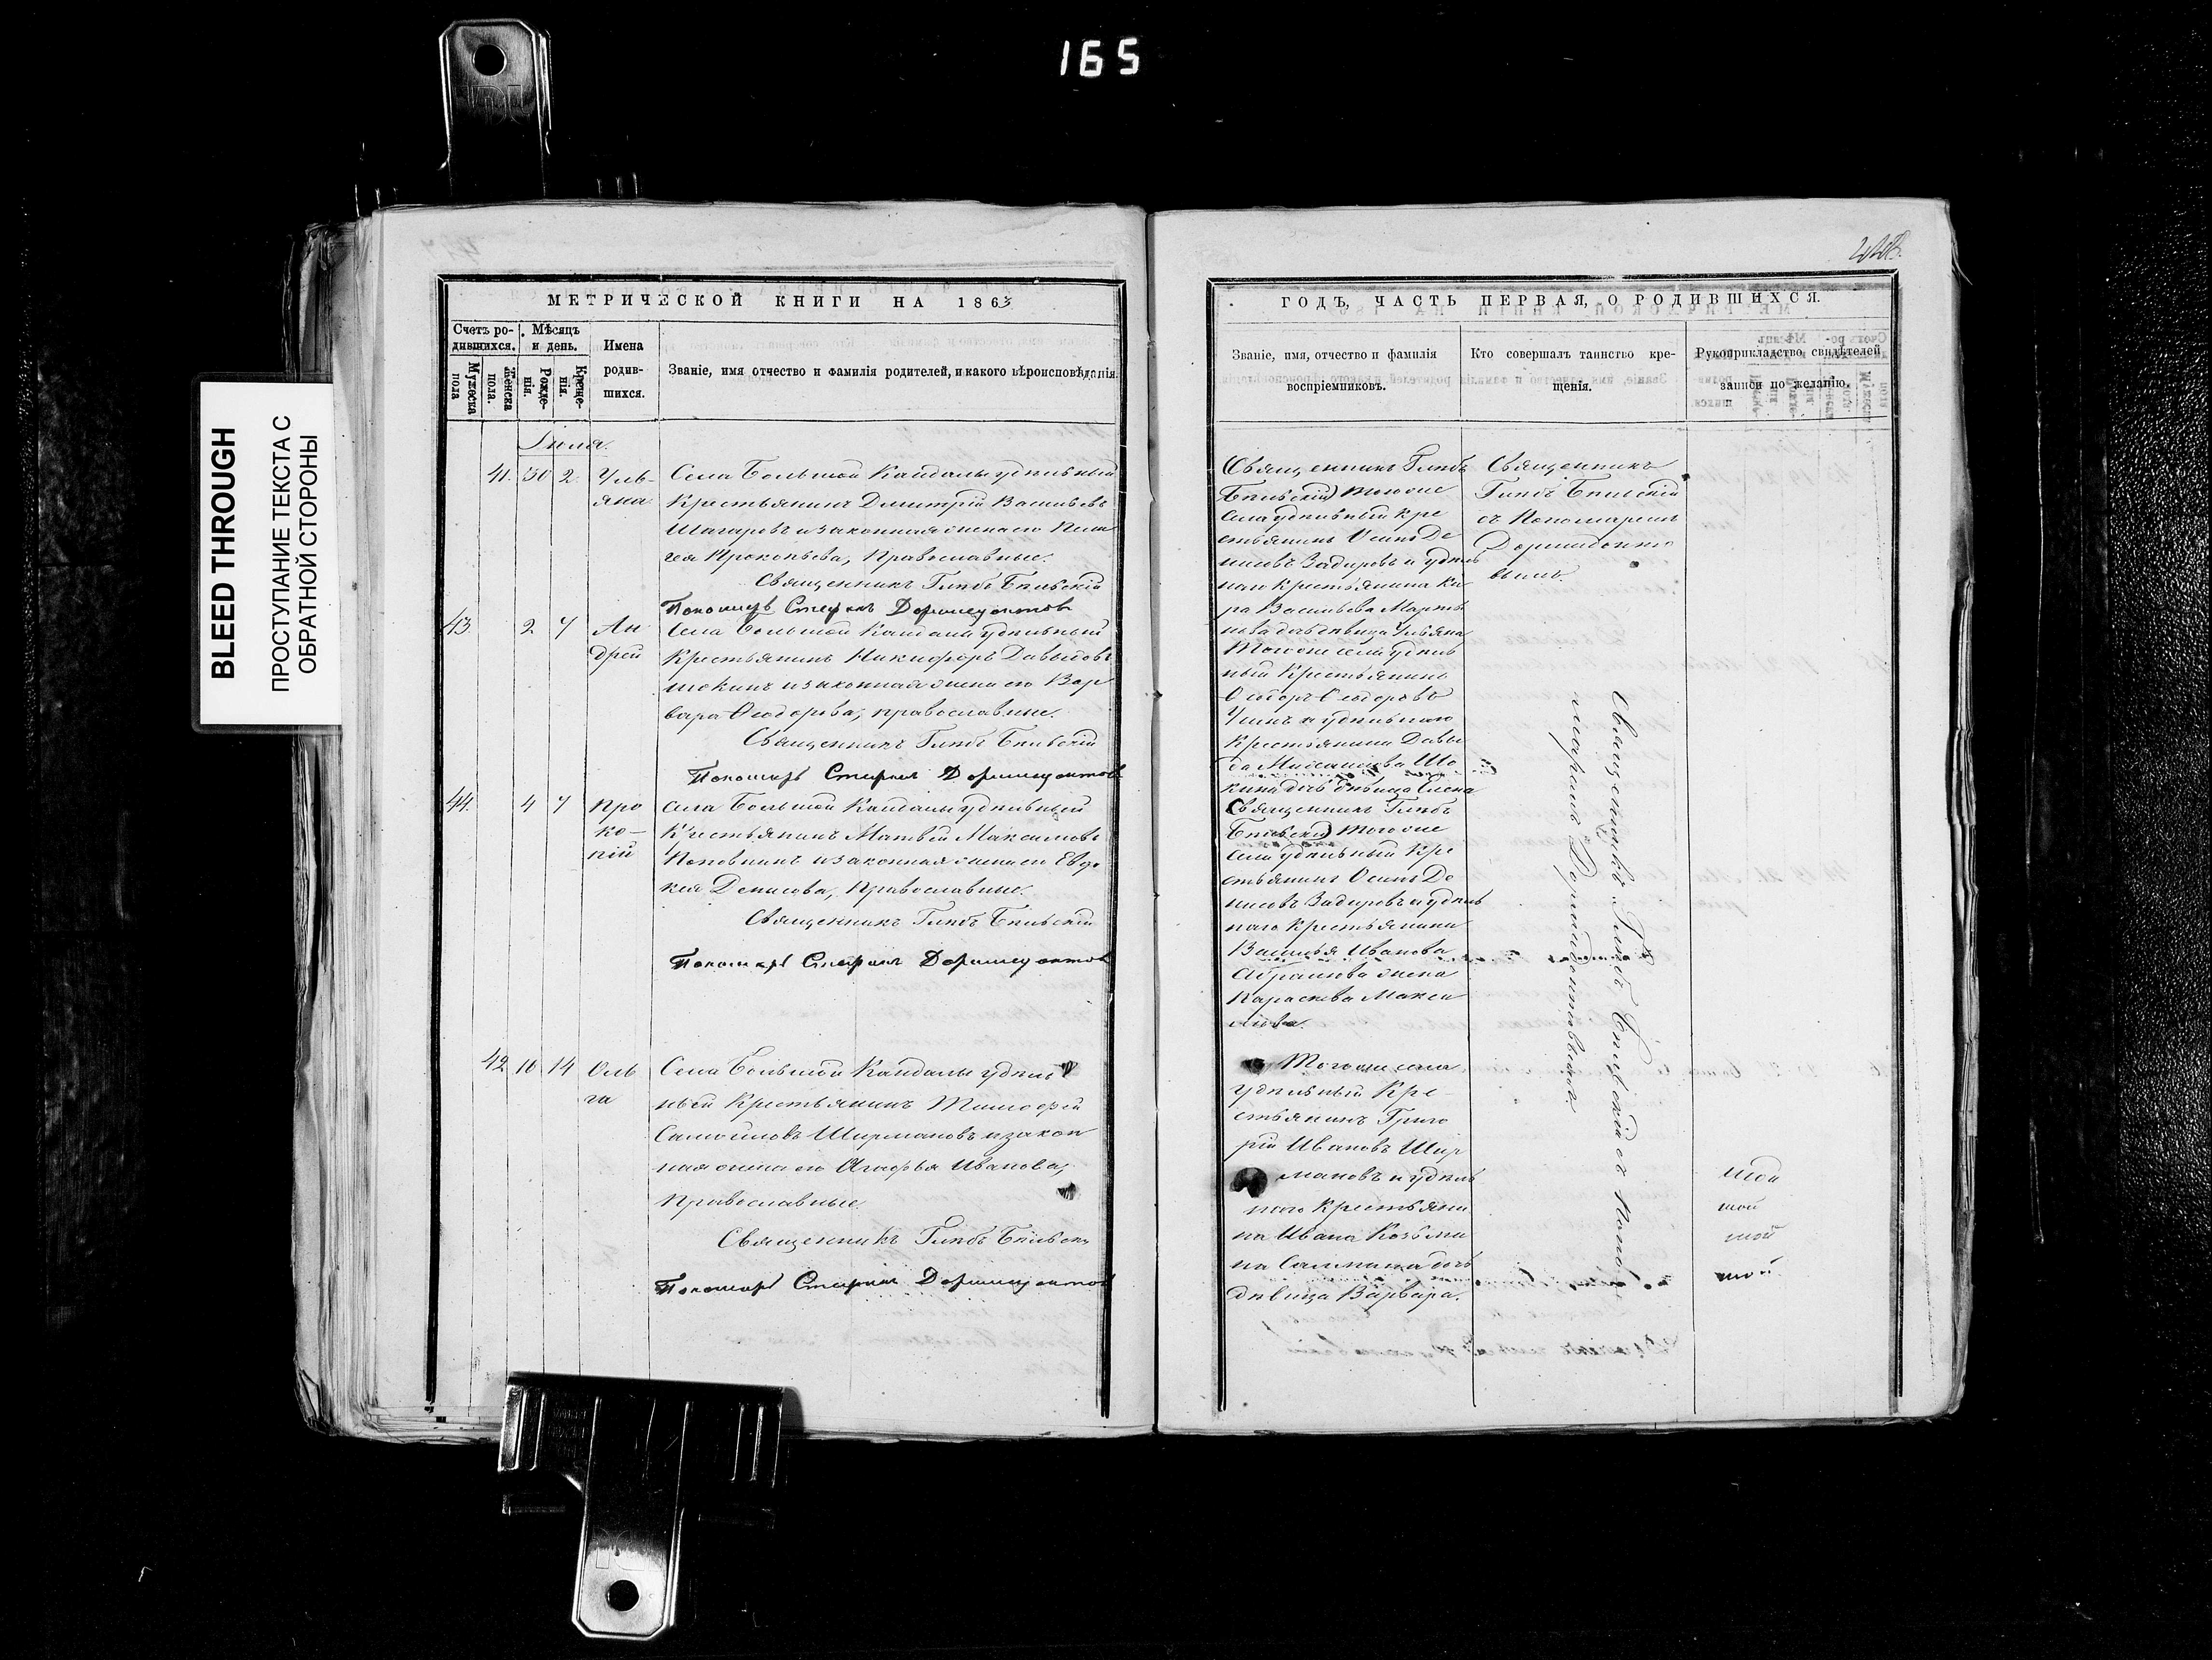 165
BLEED THROUGH
ПРОСТУПАНИЕ ТЕКСТА С
ОБРАТНОЙ СТОРОНЫ
МЕТРИЧЕСКОЙ КНИГИ НА 1863
Счетъ ро-
дившихся.
Мужеска
пола
Женска
пола.
Мѣсяцъ
и день.
Рожде-
нія.
Креще-
нія.
Имена
родив-
шихся.
Званіе, имя отчество и фамилія родителей, и какого вѣроисповѣданія.
Іюля.
41. 30 2. Улья-
яна
Села Большой Кандалы удѣльный
Крестьянинъ Димитрій Васильевъ
Шагаровъ и законная жена его Пела
гея Прокопьева, Православные.
Священникъ Глѣбъ Бѣльскій
Пономарь Стефанъ Доримедонтов
43 2 7 Ан
дрей
Села Большой Кандалы удѣльный
Крестьянинъ Никифоръ Давыдовъ
Шокинъ и законная жена его Вар
вара Ѳеодорова, православные.
Священникъ Глѣбъ Бѣльскій
Пономарь Стефанъ Доримедонтов
44. 4 7 Про
ко-
пій
Села Большой Кандалы удѣльный
Крестьянинъ Матвѣй Максимовъ
и законная жена его Евдо
кия Денисова, Православные.
Священникъ Глѣбъ Бѣльскій
Пономарь Стефанъ Доримедонтов
42 10 14 Оль
га
Села Большой Кандалы удѣль
ный Крестьянинъ Тимофей
Самойловъ Ширмановъ и закон
ная жена его Агафья Иванова,
Православные.
Священникъ Глѣбъ Бѣльскій
Пономарь Стефанъ Доримедонтов
ГОДЪ, ЧАСТЬ ПЕРВАЯ, О РОДИВШИХСЯ.
Званіе, имя, отчество и фамилія
воспріемниковъ.
Кто совершалъ таинство кре-
щенія.
Рукоприкладство свидѣтелей
записи по желанію.
Священникъ Глѣбъ
Бѣльскій того же
села удѣльный кре
стьянинъ Осипъ Де
нисовъ Задировъ и удѣль
наго Крестьянина Ки
ра Васильева Марты
нова дочь дѣвица Ульяна
Того же села удѣль
ный Крестьянинъ
Ѳеодоръ Ѳеодоровъ
и удѣльнаго
Крестьянина Давы
да Шо
кина дочь дѣвица Елена
Священникъ Глѣбъ
Бѣльскій того же
села удѣльный Кре
стьянинъ Осипъ Де
нисовъ Задировъ и удѣль
наго Крестьянина
Василья Иванова
Абрамова жена
Параскева Макси
мова.
Того же села
удѣльный Кре-
стьянинъ Григо
рій Ивановъ Шир
мановъ и удѣль
наго Крестьяни
на Ивана Козьми
на дочь
дѣвица Варвара.
Священникъ
Глѣбъ Бѣльскій
съ Пономаремъ
Доримедонто
вымъ.
Священникъ Глѣбъ Бѣльскій съ Поно-
маремъ Доримедонтовымъ.